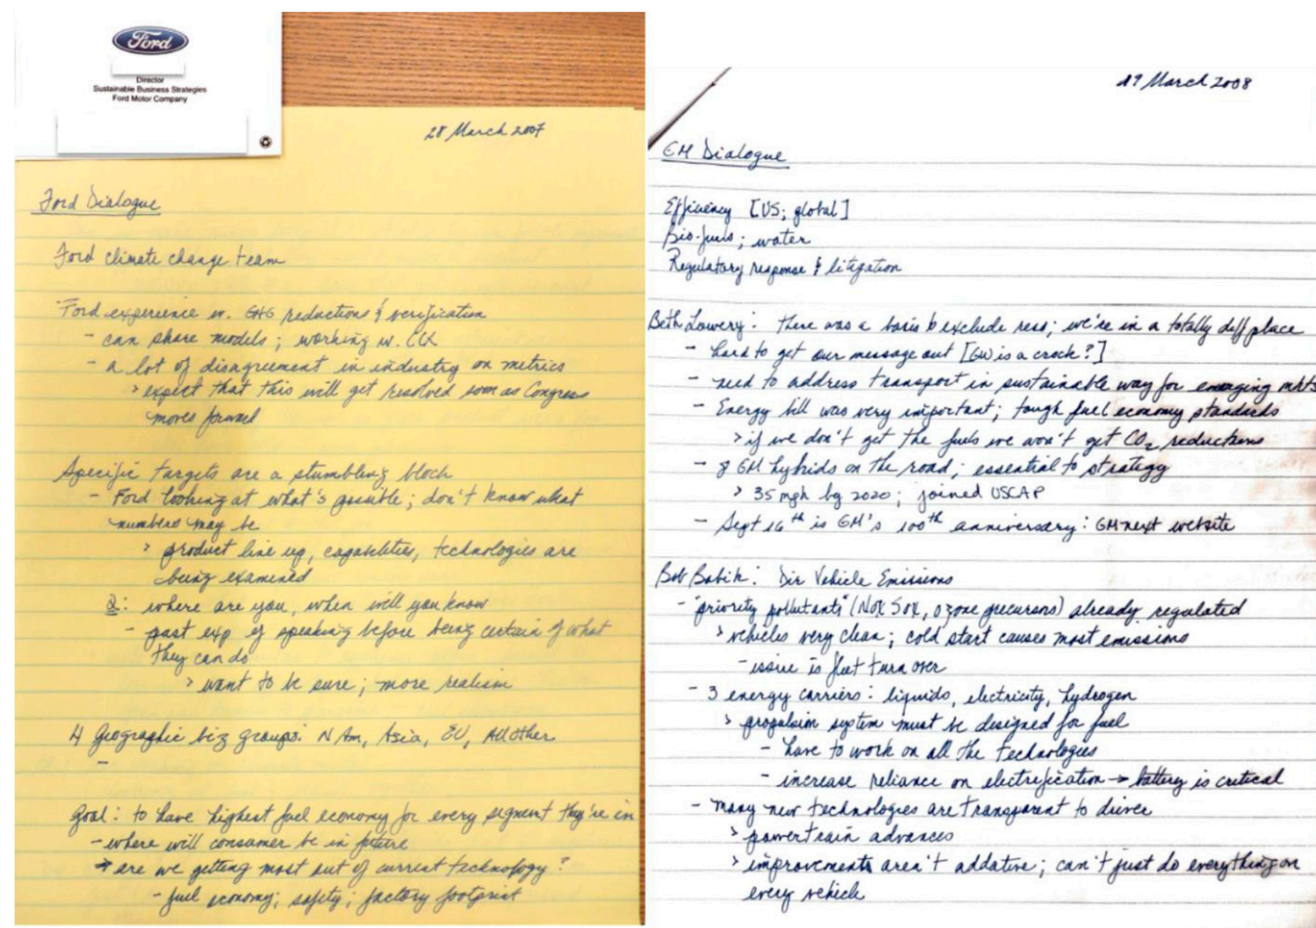 Ford
Director
Sustainable Business Strategies
Ford Motor Company
28 March 2007
Ford Dialogue
Ford climate change team
Ford experience w. GHG reductions & verification
- can share models; working w. CCX
- a lot of disagreement in industry on metrics
> expect that this will get resolved soon as Congress
moves forward
Specific targets are a stumbling block
- Ford looking at what's possible; don't know what
numbers may be
> product line up, capabilities, technologies are
being examined
Q: where are you, when will you know
- past exp of speaking before being certain of what
they can do
> want to be sure; more realism
4 Geographic biz groups: N Am, Asia, EU, All Other
-
Goal: to have highest fuel economy for every segment they're in
- where will consumer be in future
→ are we getting most out of current technology?
- fuel economy; safety; factory footprint
19 March 2008
GM Dialogue
Efficiency [US; global]
Bio-fuels; water
Regulatory response & litigation
Beth Lowery: There was a basis to exclude reso; we're in a totally diff place
- hard to get our message out [GW is a crock?]
- need to address transport in sustainable way for emerging mkts
- Energy bill was very important; tough fuel economy standards
> if we don't get the fuels we won't get CO2 reductions
- 8 GM hybrids on the road; essential to strategy
> 35 mpg by 2020; joined USCAP
- Sept 16th is GM's 100th anniversary: GMnext website
Bob Babik: Dir Vehicle Emissions
- "priority pollutants" (NOX SOX, ozone precursors) already regulated
> vehicles very clean; cold start causes most emissions
- issue is fleet turn over
- 3 energy carriers: liquids, electricity, hydrogen
> propulsion system must be designed for fuel
- have to work on all the technologies
- increase reliance on electrification → battery is critical
- many new technologies are transparent to driver
> powertrain advances
> improvements aren't addative; can't just do everything on
every vehicle